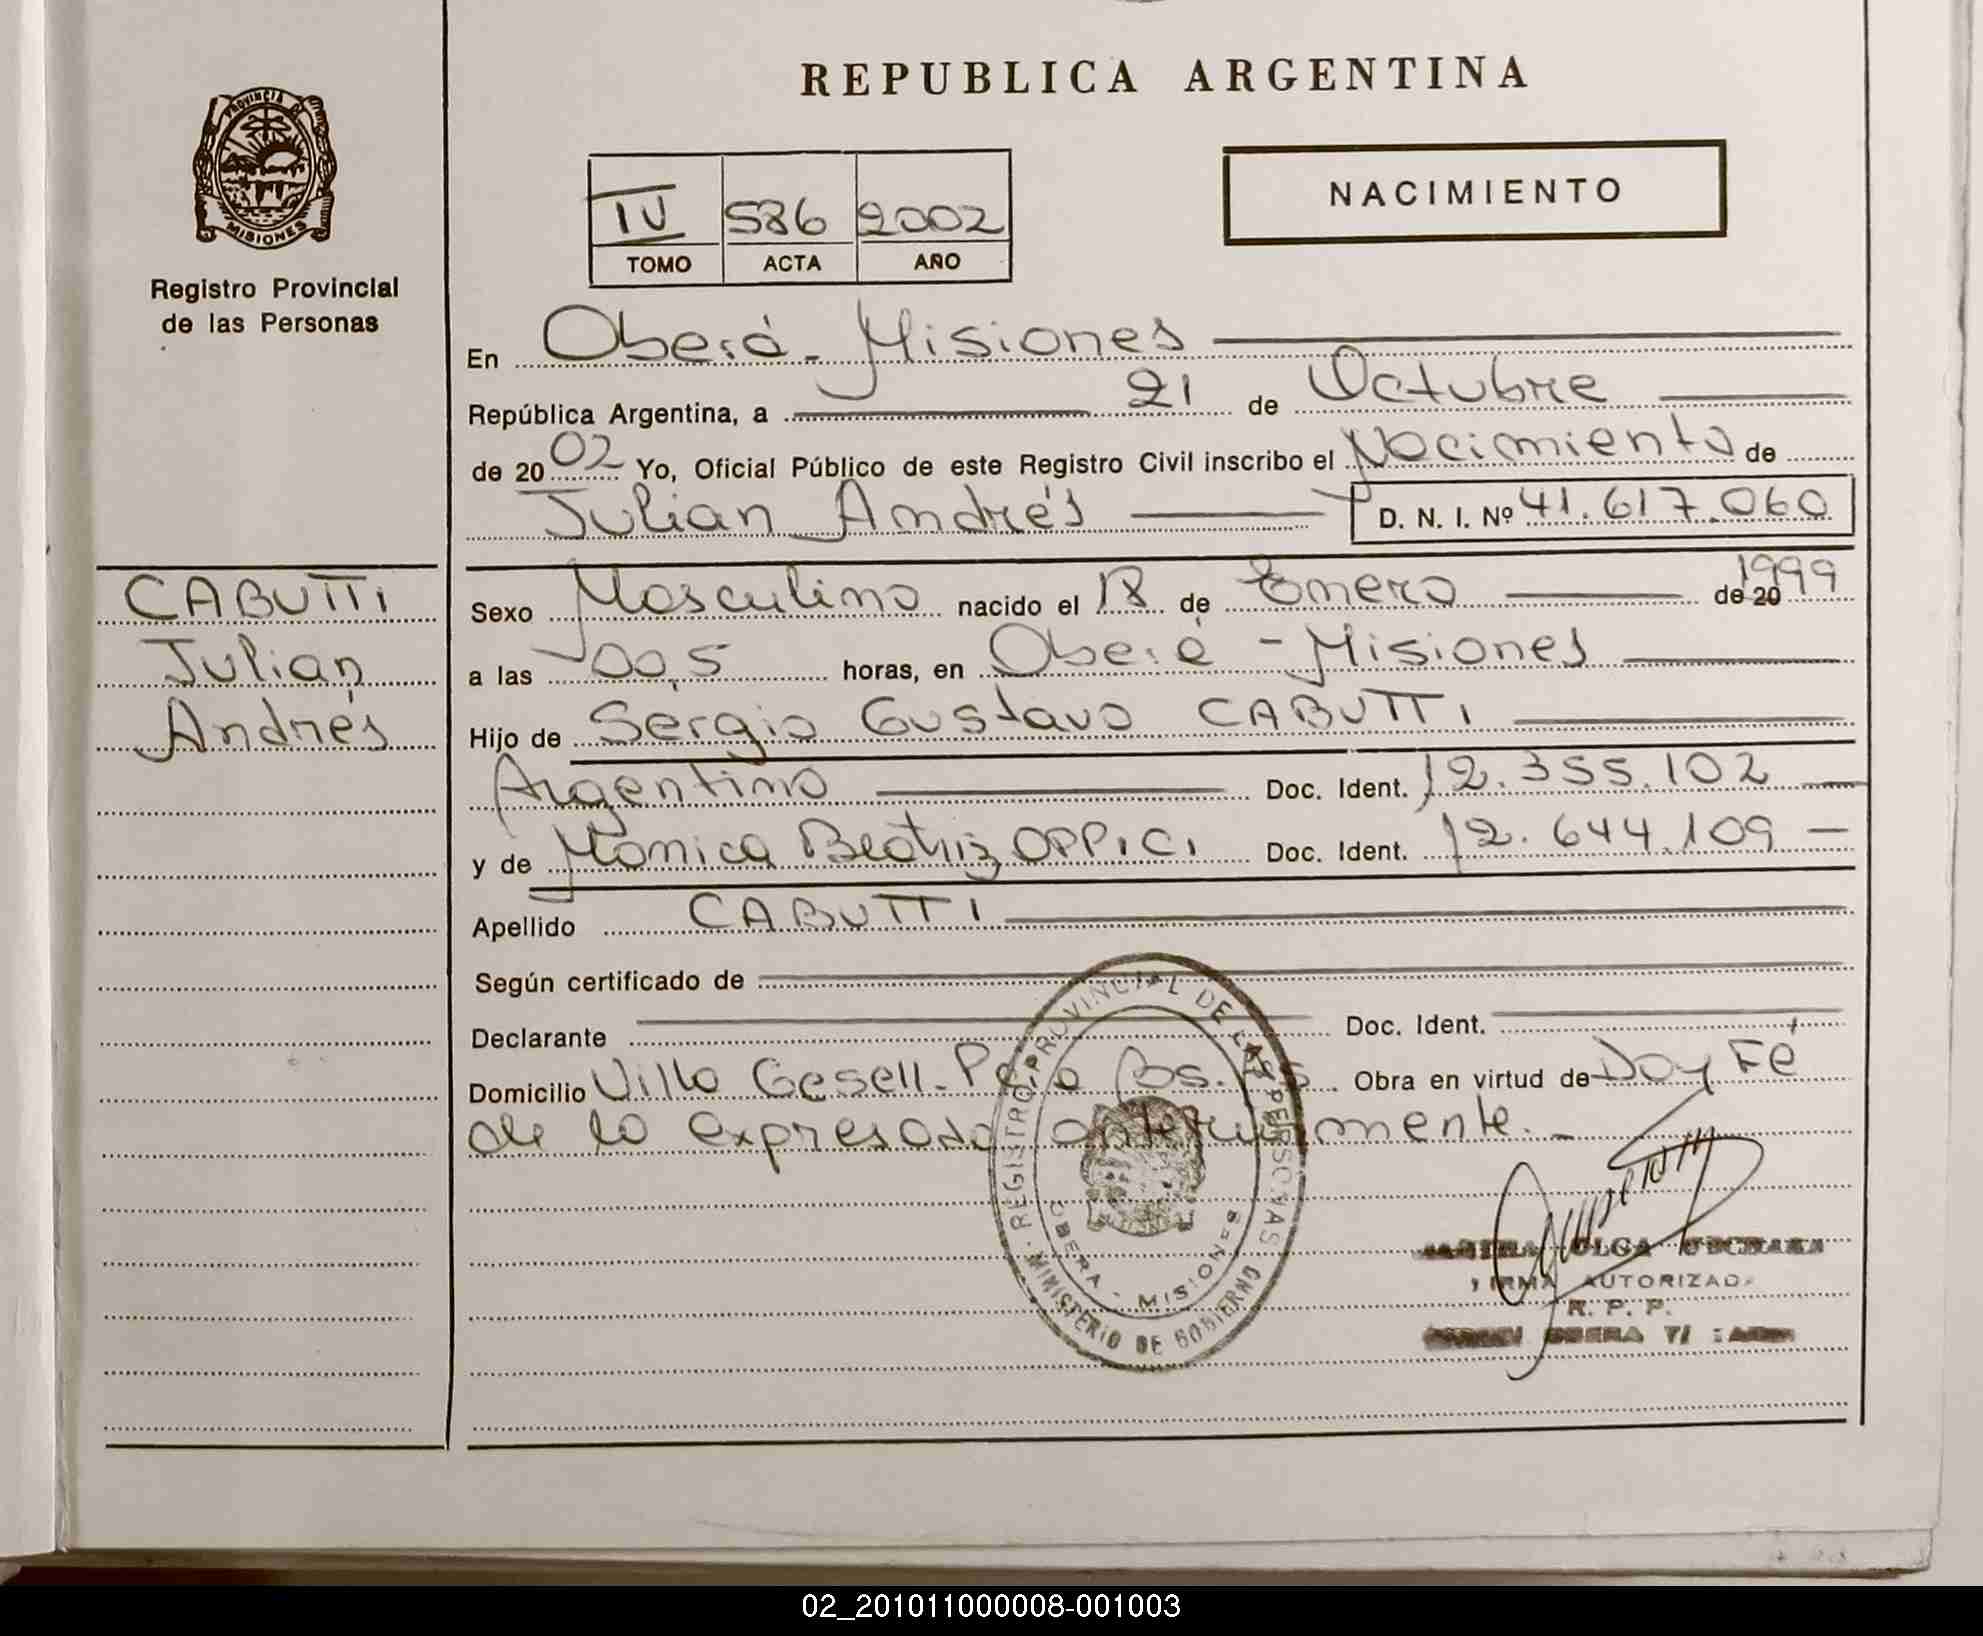 REPUBLICA ARGENTINA
PROVINCIA DE
MISIONES
Registro Provincial
de las Personas
IV 586 2002
TOMO ACTA AÑO
NACIMIENTO
En Oberá - Misiones
República Argentina, a 21 de Octubre
de 2002 Yo, Oficial Público de este Registro Civil inscribo el Nacimiento de
Julian Andrés D. N. I. Nº 41.617.060
CABUTTI
Julian
Andrés
Sexo Masculino nacido el 18 de Enero de 20 1999
a las 00,5 horas, en Oberá - Misiones
Hijo de Sergio Gustavo CABUTTI
Argentino Doc. Ident. 12.355.102
y de Mónica Beatriz OPPICI Doc. Ident. 12.644.109
Apellido CABUTTI
Según certificado de
Declarante Doc. Ident.
Domicilio Villa Gesell - Pcia Bs. As Obra en virtud de Doy Fé
de lo expresado anteriormente.
REGISTRO PROVINCIAL DE LAS PERSONAS
MINISTERIO DE GOBIERNO
OBERA - MISIONES
OLGA
FIRMA AUTORIZADA
R. P. P.
OBERA
02_201011000008-001003